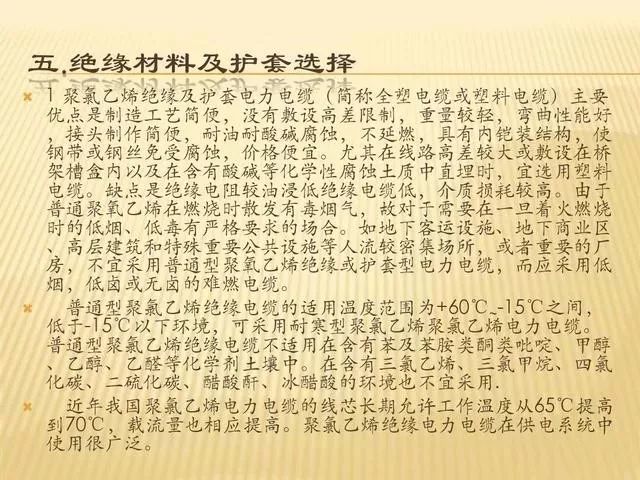 五.绝缘材料及护套选择
1 聚氯乙烯绝缘及护套电力电缆（简称全塑电缆或塑料电缆）主要
优点是制造工艺简便，没有敷设高差限制，重量较轻，弯曲性能好
，接头制作简便，耐油耐酸碱腐蚀，不延燃，具有内铠装结构，使
钢带或钢丝免受腐蚀，价格便宜。尤其在线路高差较大或敷设在桥
架槽盒内以及在含有酸碱等化学性腐蚀土质中直埋时，宜选用塑料
电缆。缺点是绝缘电阻较油浸低绝缘电缆低，介质损耗较高。由于
普通聚氧乙烯在燃烧时散发有毒烟气，故对于需要在一旦着火燃烧
时的低烟、低毒有严格要求的场合。如地下客运设施、地下商业区
、高层建筑和特殊重要公共设施等人流较密集场所，或者重要的厂
房，不宜采用普通型聚氧乙烯绝缘或护套型电力电缆，而应采用低
烟，低卤或无卤的难燃电缆。
普通型聚氯乙烯绝缘电缆的适用温度范围为+60℃~-15℃之间，
低于-15℃以下环境，可采用耐寒型聚氯乙烯聚氯乙烯电力电缆。
普通型聚氯乙烯绝缘电缆不适用在含有苯及苯胺类酮类吡啶、甲醇
、乙醇、乙醛等化学剂土壤中。在含有三氯乙烯、三氯甲烷、四氯
化碳、二硫化碳、醋酸酐、冰醋酸的环境也不宜采用.
近年我国聚氯乙烯电力电缆的线芯长期允许工作温度从65℃提高
到70℃，载流量也相应提高。聚氯乙烯绝缘电力电缆在供电系统中
使用很广泛。